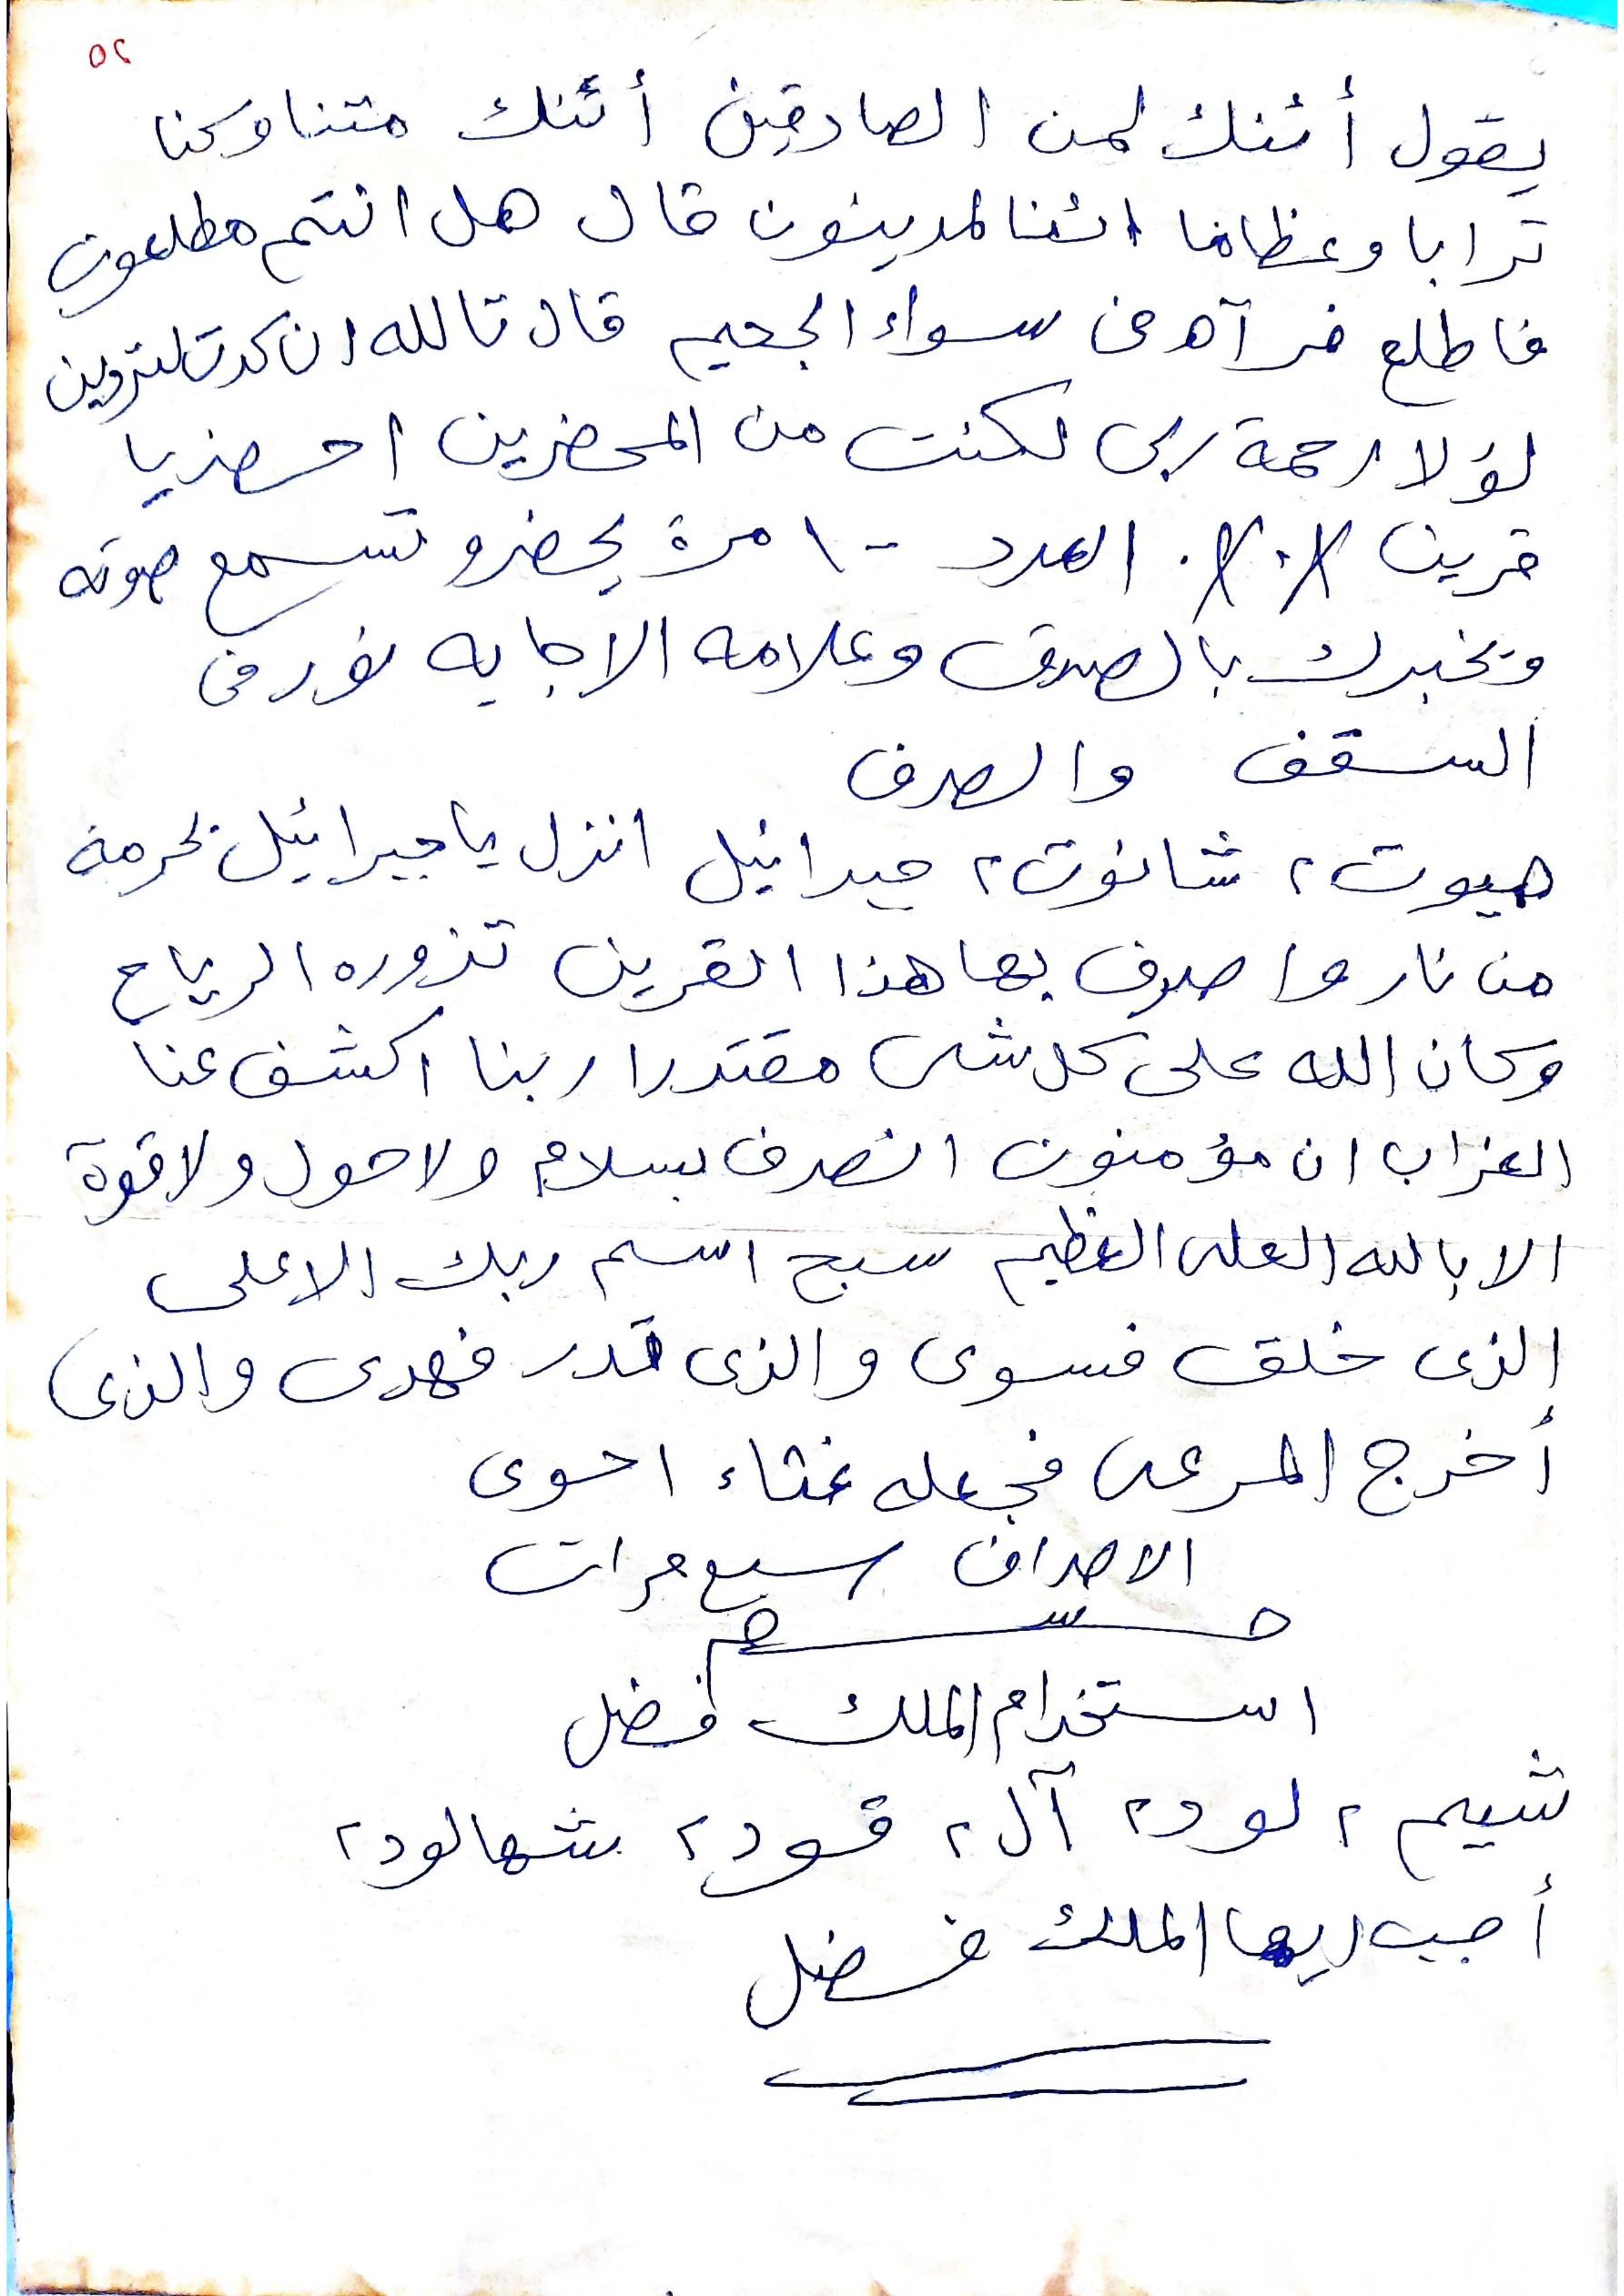 ٥٢
يقول أئنك لمن الصادقين أئنك متنا وكنا
ترابا وعظاما ائنا لمدينون قال هل انتم مطلعون
فاطلع فرآه فى سواء الجحيم قال تالله ان كدت لتردين
لولا رحمة ربى لكنت من المحضرين احضر يا
قرين العدد ١٠٠ مرة يحضر و تسمع صوته
ويخبرك بالصدق وعلامه الاجابه نور فى
السقف والصرف
هيوت ٢ شانوت ٢ جبرائيل انزل يا جبرائيل بحرمة
من نار واصرف بها هذا القرين تذوره الرياح
وكان الله على كل شى مقتدرا ربنا اكشف عنا
العذاب ان مؤمنون انصرف بسلام ولا حول ولا قوة
الا بالله العلى العظيم سبح اسم ربك الاعلى
الذى خلق فسوى والذى قدر فهدى والذى
أخرج المرعى فجعله غثاء احوى
سبع مرات
استخدام الملك فضل
شيم ٢ لود ٢ آل ٢ قود ٢ شهالود ٢
أجب ايها الملك فضل